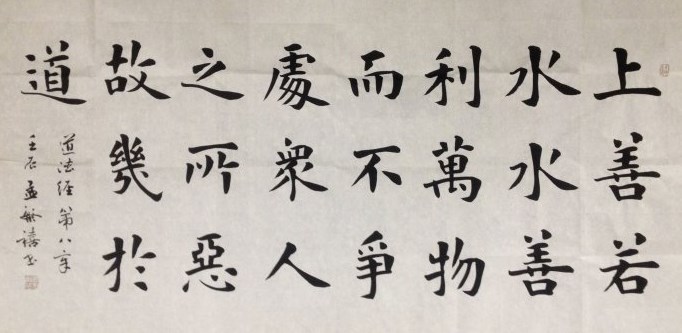 上善若
水水善
利萬物
而不爭
處衆人
之所惡
故幾於
道
道法經第八章
壬辰孟敏禧书